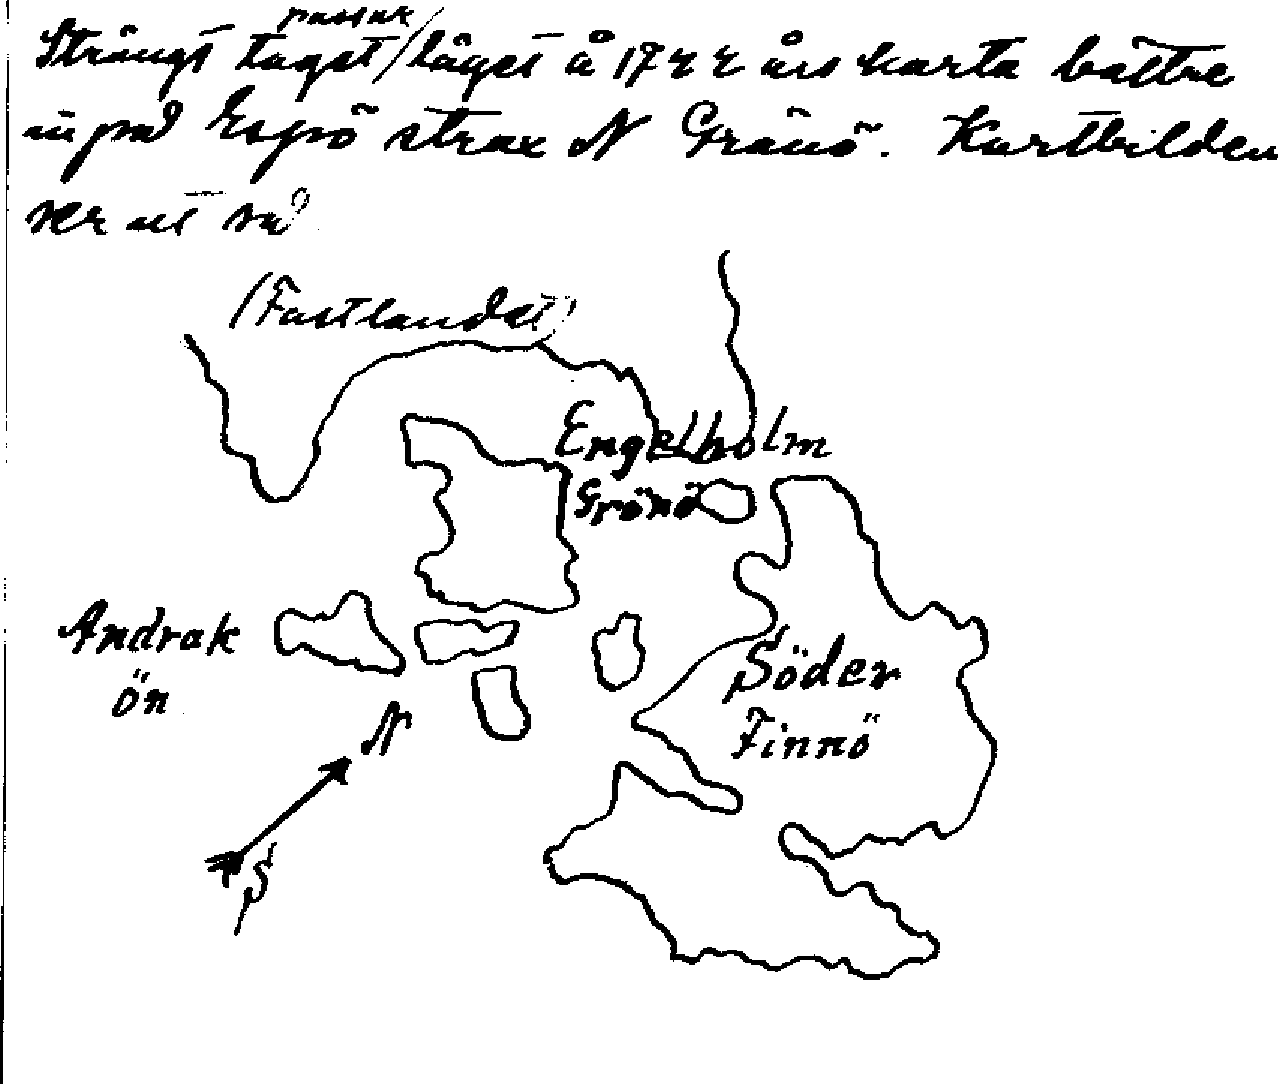 Strängt taget passar läget å 1742 års karta bättre
in på Espö strax N Gränö. Kartbilden
ser ut så
(Fastlandet)
Engelholm
Grönö
Andrak
ön
Söder
Finnö
N
S